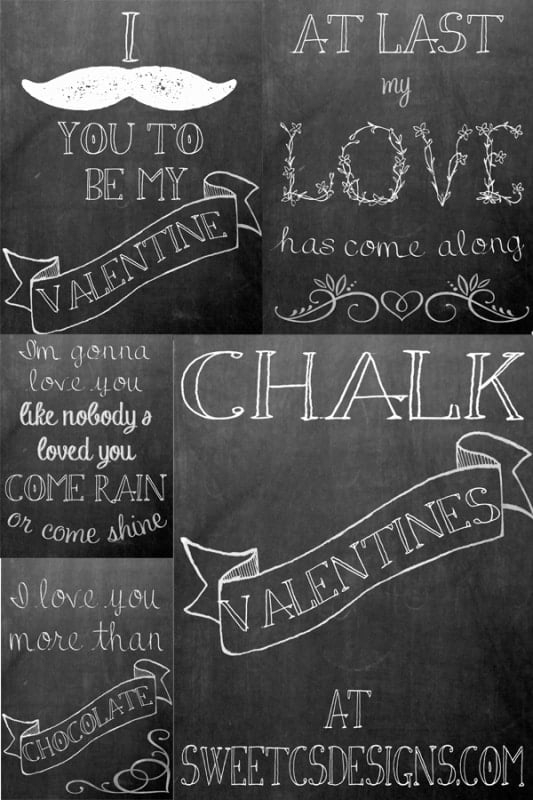 I
YOU TO
BE MY
VALENTINE
AT LAST
my
LOVE
has come along
I'm gonna
love you
like nobody's
loved you
COME RAIN
or come shine
I love you
more than
CHOCOLATE
CHALK
VALENTINES
AT
SWEETCSDESIGNS.COM